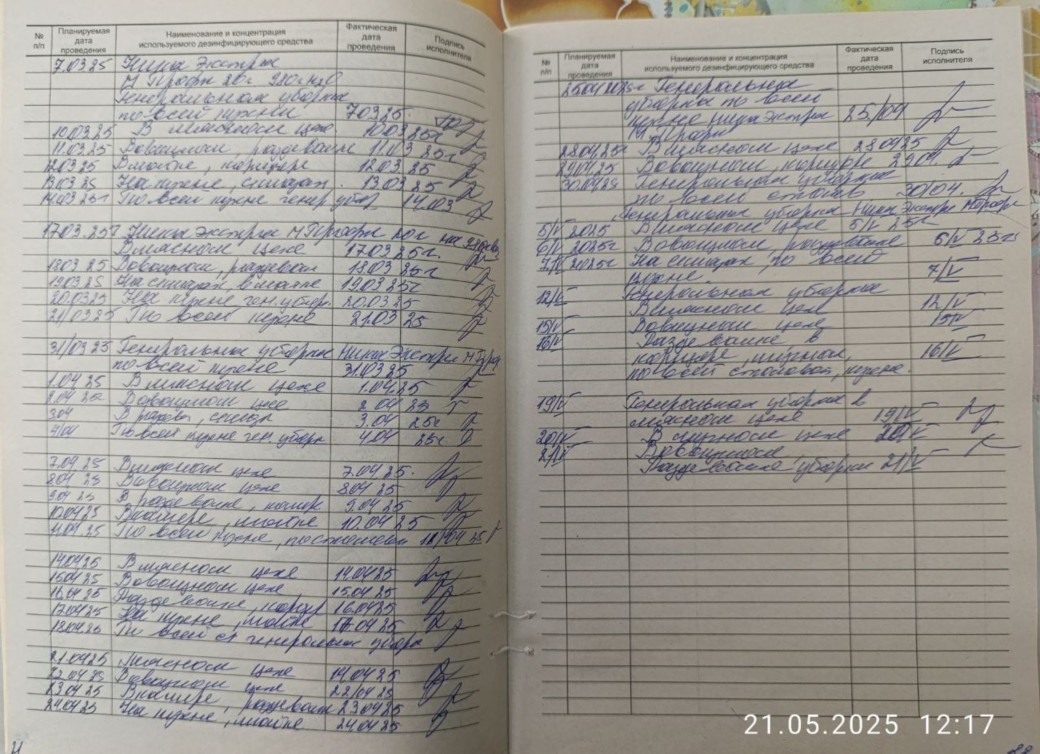 № п/п Планируемая дата проведения Наименование и концентрация используемого дезинфицирующего средства Фактическая дата проведения Подпись исполнителя
7.03.25 Ника Экстра
М Профи 20г
Генеральная уборка
по всей кухни 7.03.25.
10.03.25 В мясном цехе 10.03.25г
11.03.25 В овощном, раздевалке 11.03.25г
12.03.25 В мойке, коридоре 12.03.25
13.03.25 На кухне, складах 13.03.25
14.03.25г По всей кухне генер убор 14.03
17.03.25г Ника Экстра М Профи 20г на
В мясном цехе 17.03.25г.
18.03.25 В овощном, раздевал 18.03.25г
19.03.25 На складах в мойке 19.03.25г
20.03.25 На кухне ген. убор. 20.03.25
21/03.25 По всей кухне 21.03.25
31/03.25 Генеральная уборка Ника Экстра М Проф
по всей кухне 31.03.25
1.04.25 В мясном цехе 1.04.25
2.04.25 В овощном цехе 2.04.25
3.04 В раздев, склад 3.04.25г
4/04 По всей кухне ген. уборк 4.04.25г
7.04.25 В мясном цехе 7.04.25.
8.04.25 В овощном цехе 8.04.25
9.04.25 В раздевалке, 9.04.25
10.04.25 мойке 10.04.25
11.04.25 По всей кухне, 11/04.25
14.04.25 В мясном цехе 14.04.25
15.04.25 В овощном цехе 15.04.25
16.04.25 Раздевалке, корид 16.04.25
17.04.25 На кухне, мойке 17.04.25
18.04.25 По всей ст генеральная уборка
21.04.25 Мясном цехе
22.04.25 В овощном цехе 22/04.25
23.04.25 раздевалк 23.04.25
24.04.25 На кухне, мойке 24.04.25
№ п/п Планируемая дата проведения Наименование и концентрация используемого дезинфицирующего средства Фактическая дата проведения Подпись исполнителя
25.04.2025г Генеральная
уборка по всей
кухне Ника Экстра 25/04
М Профи
28.04.25г В мясном цехе 28.04.25
29.04.25 В овощном, коридоре 29.04
30.04.25 Генеральная уборка
по всей 30/04
Генеральная уборка Ника Экстра М Профи
5/V 2025 В мясном цехе 5/V 25г
6/V 2025г В овощном, раздевалке 6/V 25г
7/V 2025г На складах, по всей
кухне 7/V
12/V Генеральная уборка
В мясном цехе 12/V
15/V В овощном цехе 15/V
16/V Раздевалке в
коридоре,
по всей столовой, кухне. 16/V
19/V Генеральная уборка в
мясном цехе 19/V
20/V цехе 20/V
21/V В овощном
Раздевалке уборка 21/V
21.05.2025 12:17